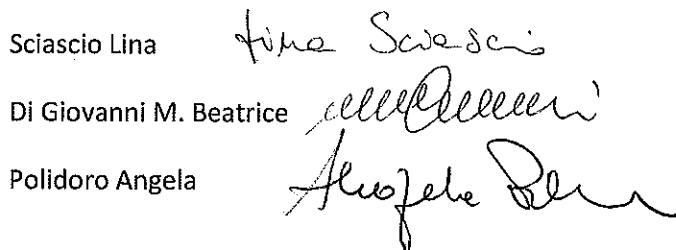 Sciascio Lina Lina Sciascio
Di Giovanni M. Beatrice
Polidoro Angela Angela